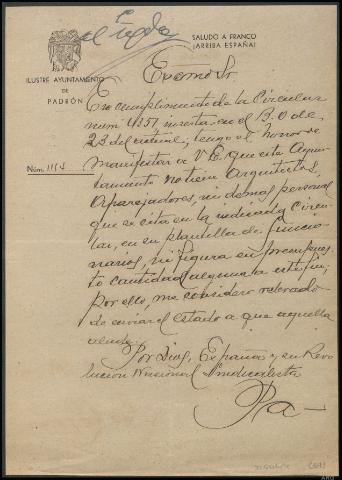 SALUDO A FRANCO
¡ARRIBA ESPAÑA!
ILUSTRE AYUNTAMIENTO
DE
PADRÓN
Núm. 1114
Excmo Sr.
En cumplimiento de la Circular
num 4351 inserta en el B.O. de
23 del actual, tengo el honor de
manifestar a V.E. que este Ayun-
tamiento no tiene Arquitectos,
Aparejadores, ni demas personal
que se cita en la indicada Circu-
lar, en su plantilla de funcio-
narios, ni figura en presupues-
to cantidad alguna a este fin;
por ello, me considero relevado
de enviar el estado a que aquella
alude.
Por Dios, España y su Revo
lucion Nacional Sindicalista
Pa-